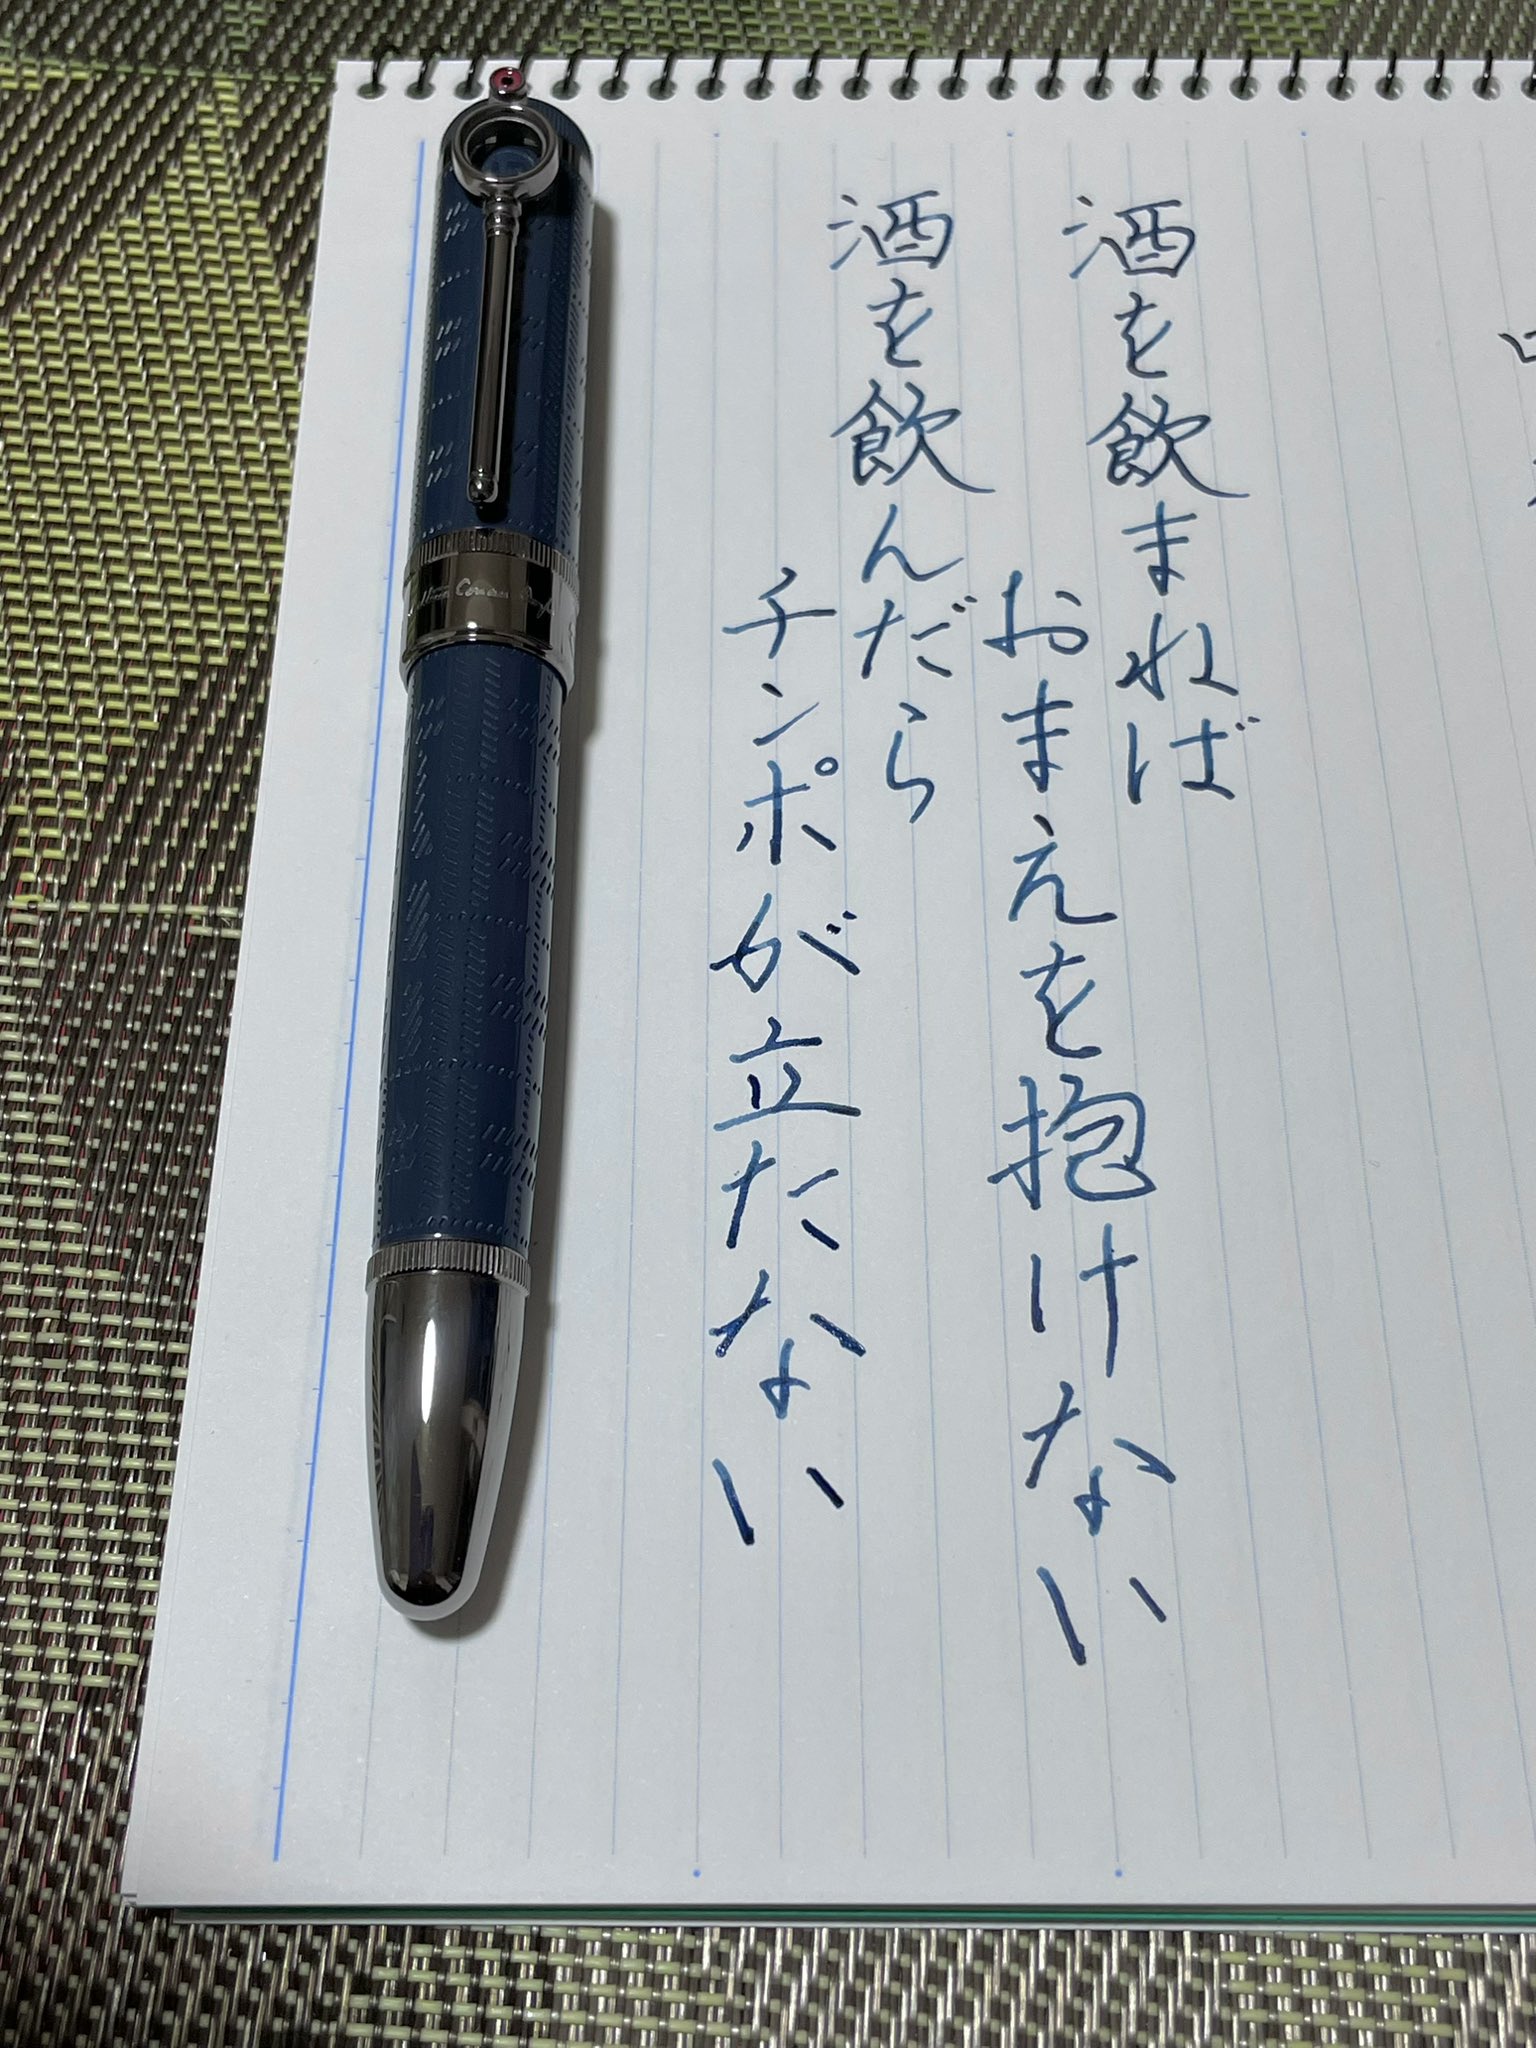 酒を飲まねば
おまえを抱けない
酒を飲んだら
チンポが立たない
Conan